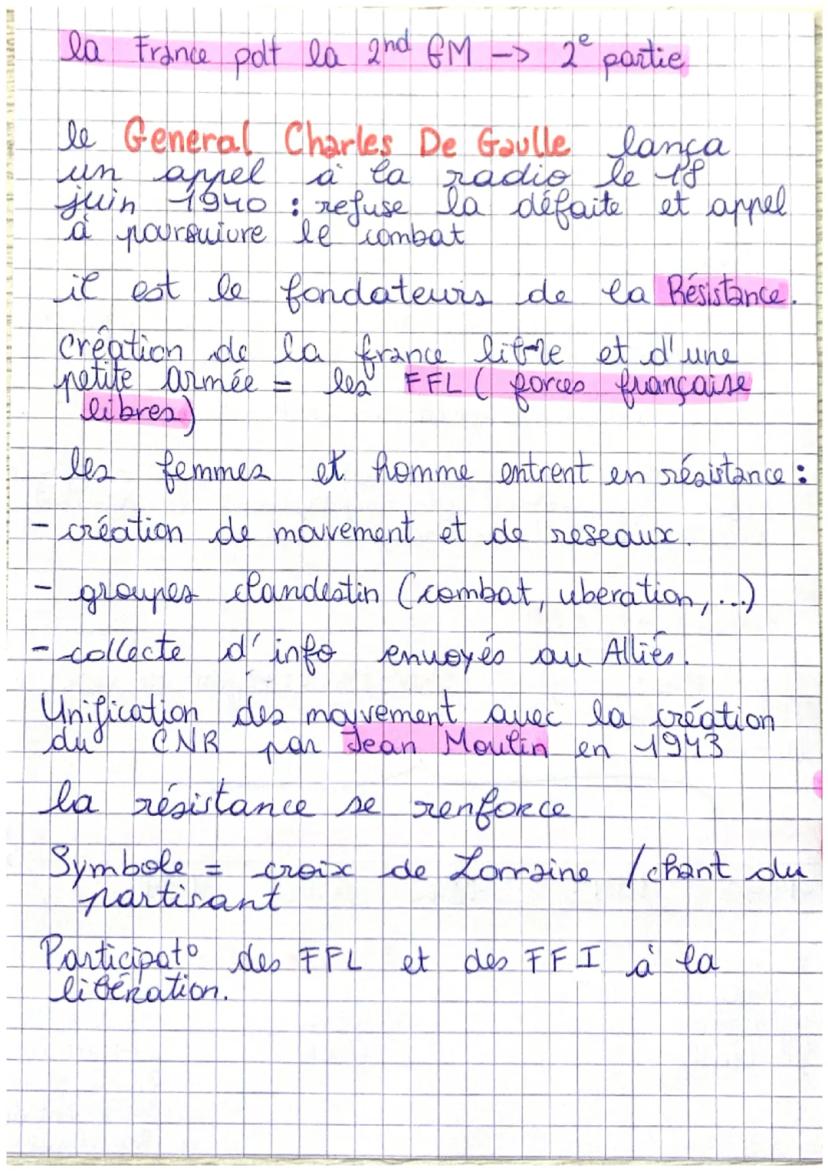 la France pdt la 2nd GM -> 2e partie
le General Charles De Gaulle lança
un appel à la radio le 18
juin 1940 : refuse la défaite et appel
à poursuivre le combat
il est le fondateurs de la Résistance.
Création de la france libre et d'une
petite armée = les FFL ( forces française
libres)
les femmes et homme entrent en résistance :
- création de mouvement et de reseaux.
- groupes clandestin (combat, liberation, ...)
- collecte d'info envoyés au Alliés.
Unification des mouvement avec la création
du CNR par Jean Moulin en 1943
la résistance se renforce
Symbole = croix de Lorraine / chant du
partisant
Participat° des FFL et des FFI à la
libération.